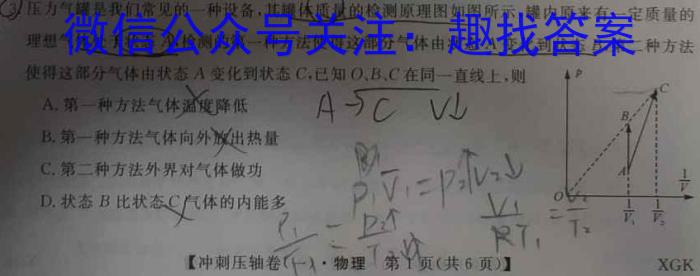 3.压力气罐是我们常见的一种设备,其罐体质量的检测原理图如图所示,罐内原来有一定质量的
理想气体 检测 第一种方法使得这部分气体由 变化到状态 二种方法
微信公众号关注：趣找答案
使得这部分气体由状态 A 变化到状态 C,已知 O、B、C 在同一直线上,则
A. 第一种方法气体温度降低
B. 第一种方法气体向外放出热量
C. 第二种方法外界对气体做功
D. 状态 B 比状态 C 气体的内能多
A→C V↓
P₁V₁=P₂↑V₂↓
p
C
B
A
O
1/V₁
1/V₂
1/V
【冲刺压轴卷(一)·物理 第 1 页(共 6 页)】
XGK